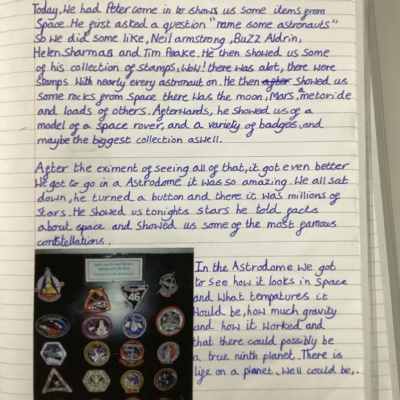 Today, We had Peter come in to shows us some items from
Space. He first asked a question "name some astronauts"
So we did some like, Neil armstrong, Buzz Aldrin,
Helen Sharman and Tim Peake. He then showed us some
of his collection of stamps, WoW! there was alot, there were
Stamps with nearly every astronaut on. He then after showed us
Some rocks from Space there was the moon, Mars, a metoride
and loads of others. Afterwards, he showed us of a
model of a Space rover, and a variety of badges, and
maybe the biggest collection aswell.
After the eximent of seeing all of that, it got even better
We got to go in a Astrodome it was so amazing. We all sat
down, he turned a button and there it was millions of
Stars. He Showed us tonights stars he told facts
about space and Showed us some of the most famous
constellations.
In the Astrodome We got
to see how it looks in Space
and What tempatures it
Would be, how much gravity
and how it Worked and
that there could possibly be
a true ninth planet. There is
life on a planet, Well could be,.
46